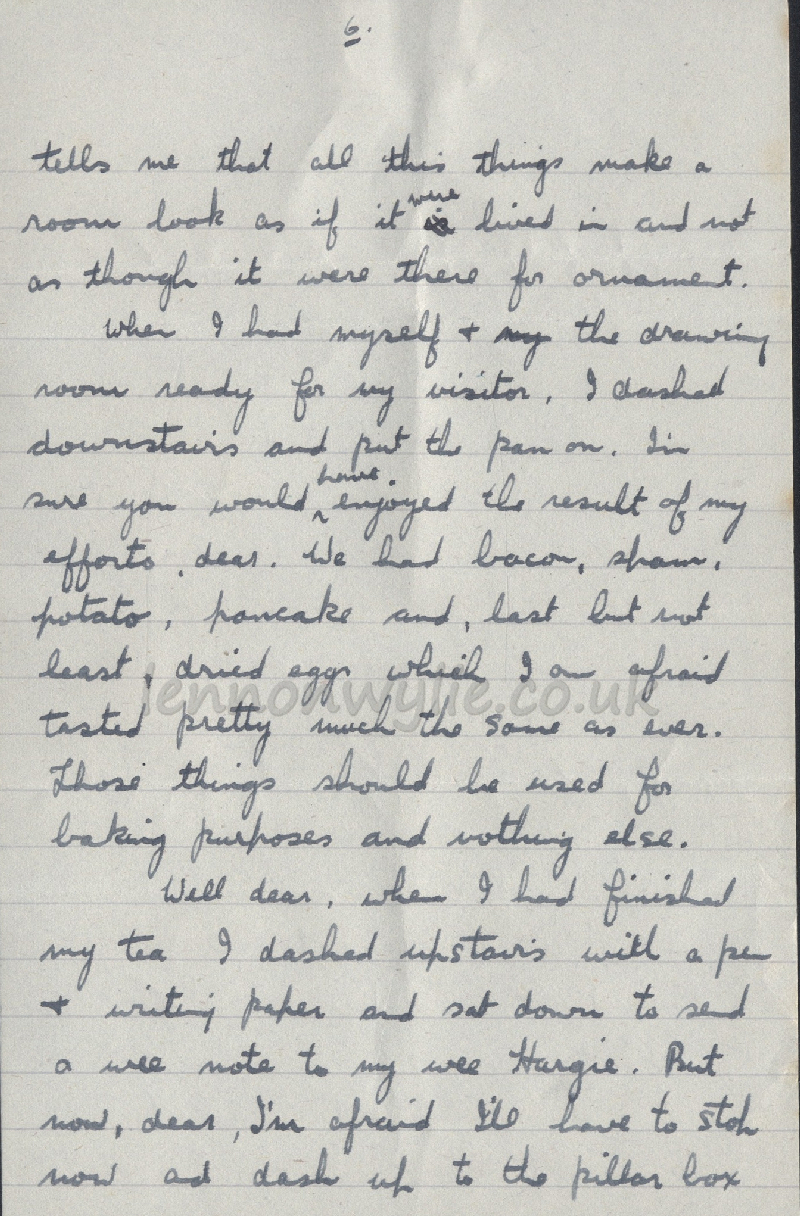 6.
tells me that all this things make a
room look as if it were lived in and not
as though it were there for ornament.
When I had myself + my the drawing
room ready for my visitor, I dashed
downstairs and put the pan on. I'm
sure you would have enjoyed the result of my
efforts, dear. We had bacon, spam,
potato, pancake and, last but not
least, dried eggs which I am afraid
lennonwylie.co.uk
tasted pretty much the same as ever.
Those things should be used for
baking purposes and nothing else.
Well dear, when I had finished
my tea I dashed upstairs with a pen
+ writing paper and sat down to send
a wee note to my wee Hargie. But
now, dear, I'm afraid I'll have to stop
now ad dash up to the pillar box